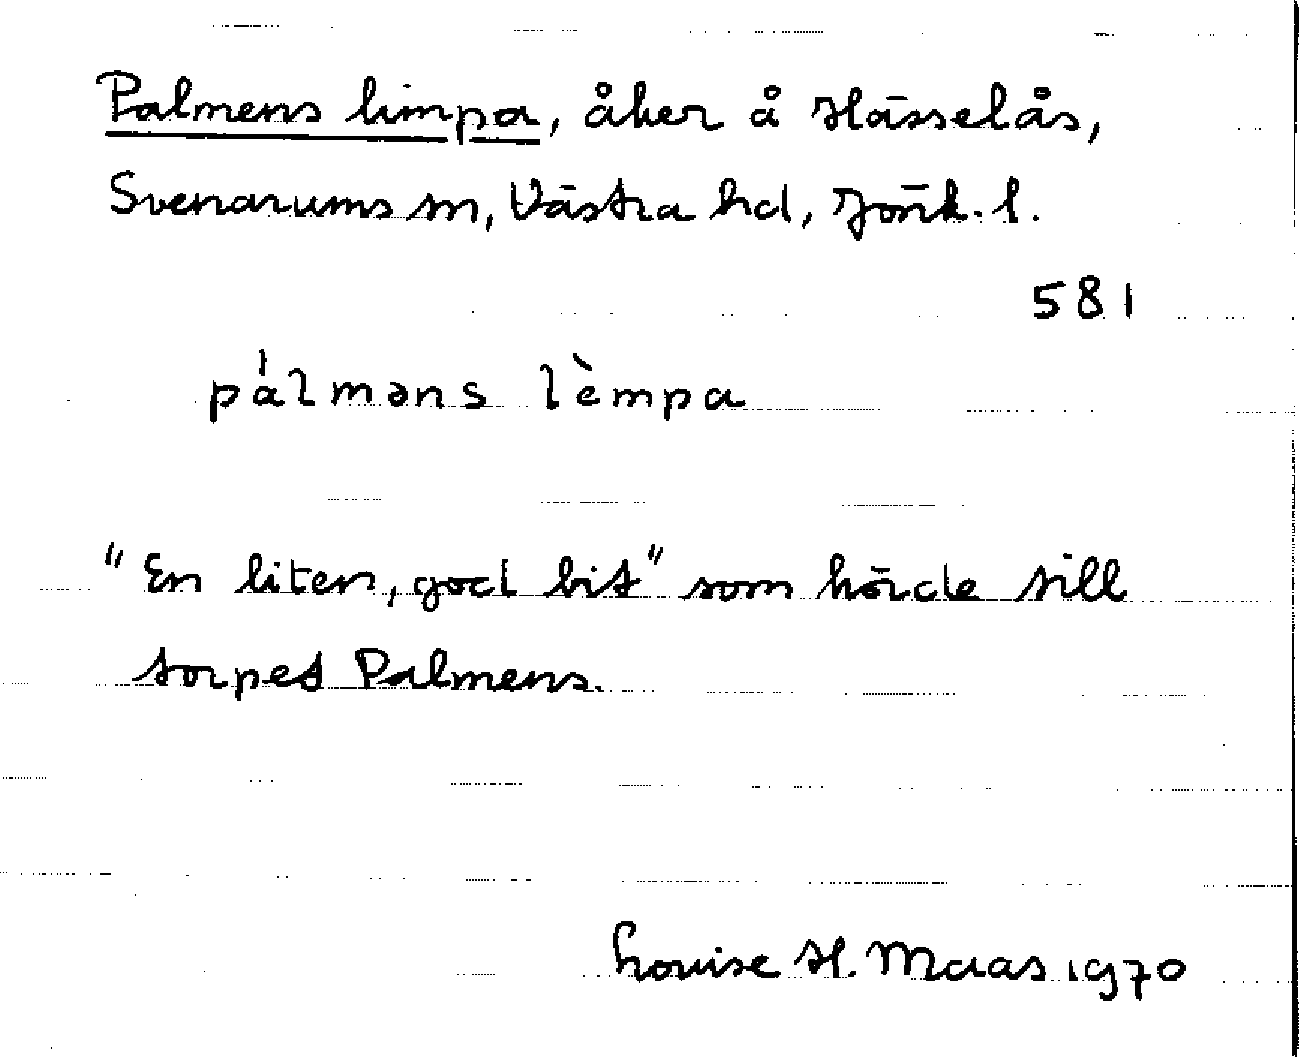 Palmens limpa, åker å Hässelås,
Svenarums sn, Västra hd, Jönk. l.
581
pálməns lèmpa
"En liten, god bit" som hörde till
torpet Palmens.
Louise H. Maas 1970